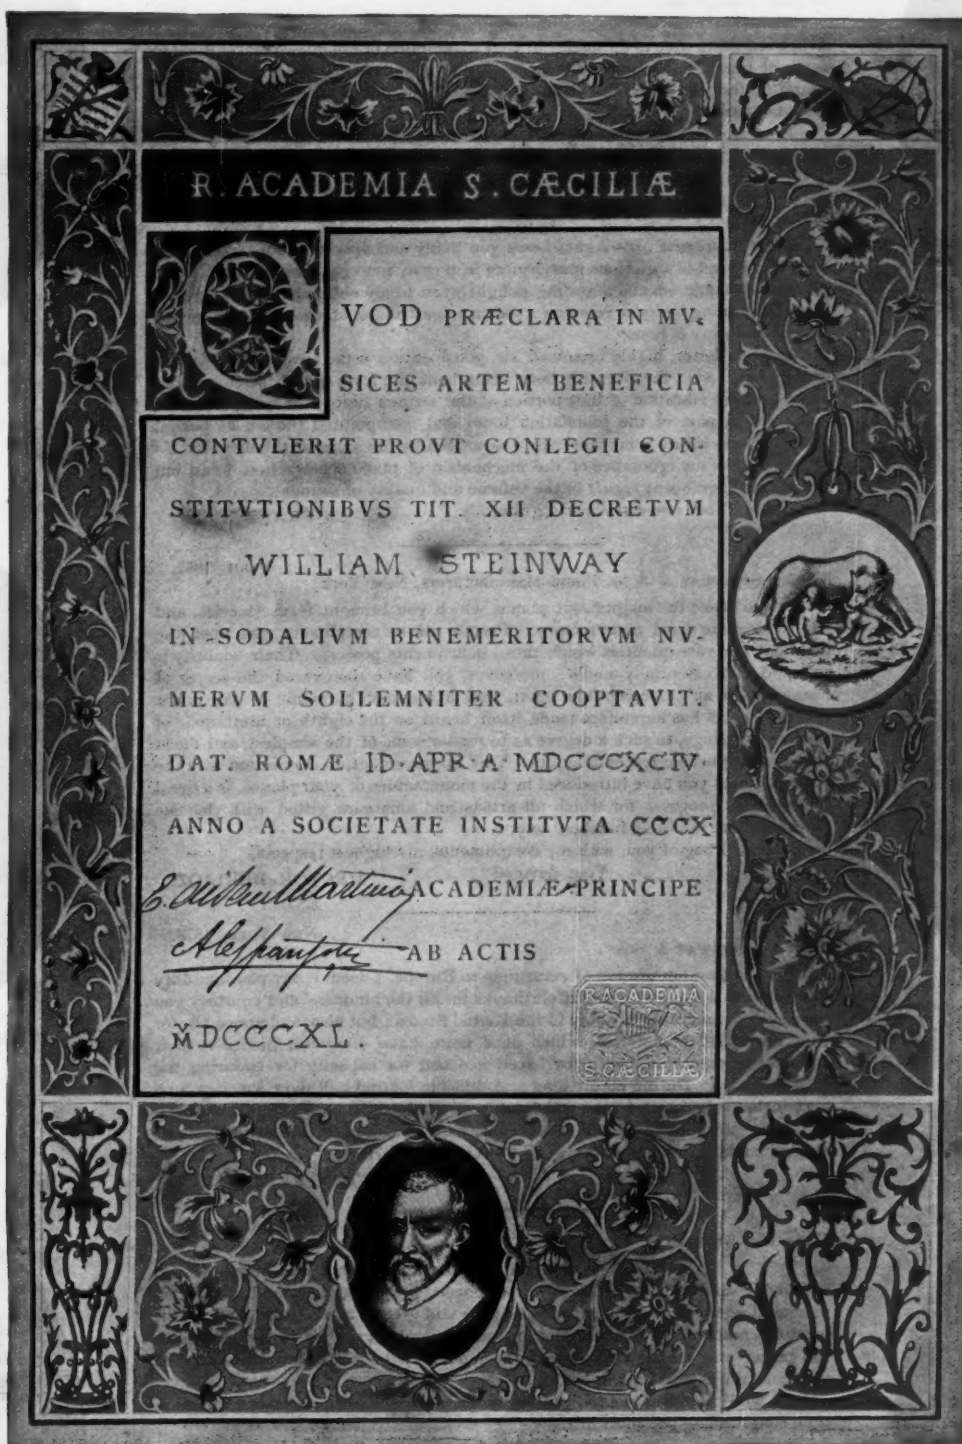 R. ACADEMIA S. CÆCILIÆ
QVOD PRÆCLARA IN MV-
SICES ARTEM BENEFICIA
CONTVLERIT PROVT CONLEGII CON-
STITVTIONIBVS TIT. XII DECRETVM
WILLIAM STEINWAY
IN SODALIVM BENEMERITORVM NV-
MERVM SOLLEMNITER COOPTAVIT.
DAT. ROMÆ ID·APR·A·MDCCCXCIV·
ANNO A SOCIETATE INSTITVTA CCCX
ACADEMIÆ PRINCIPE
AB ACTIS
MDCCCXL.
R. ACADEMIA
S. CÆCILIÆ